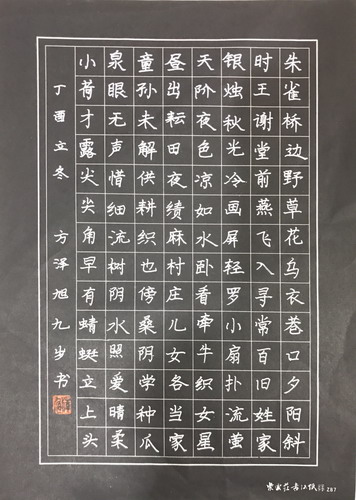 朱雀桥边野草花乌衣巷口夕阳斜
时王谢堂前燕飞入寻常百旧姓家
银烛秋光冷画屏轻罗小扇扑流萤
天阶夜色凉如水卧看牵牛织女星
昼出耘田夜绩麻村庄儿女各当家
童孙未解供耕织也傍桑阴学种瓜
泉眼无声惜细流树阴水照爱晴柔
小荷才露尖尖角早有蜻蜓立上头
丁酉立冬 方泽旭九岁书
287